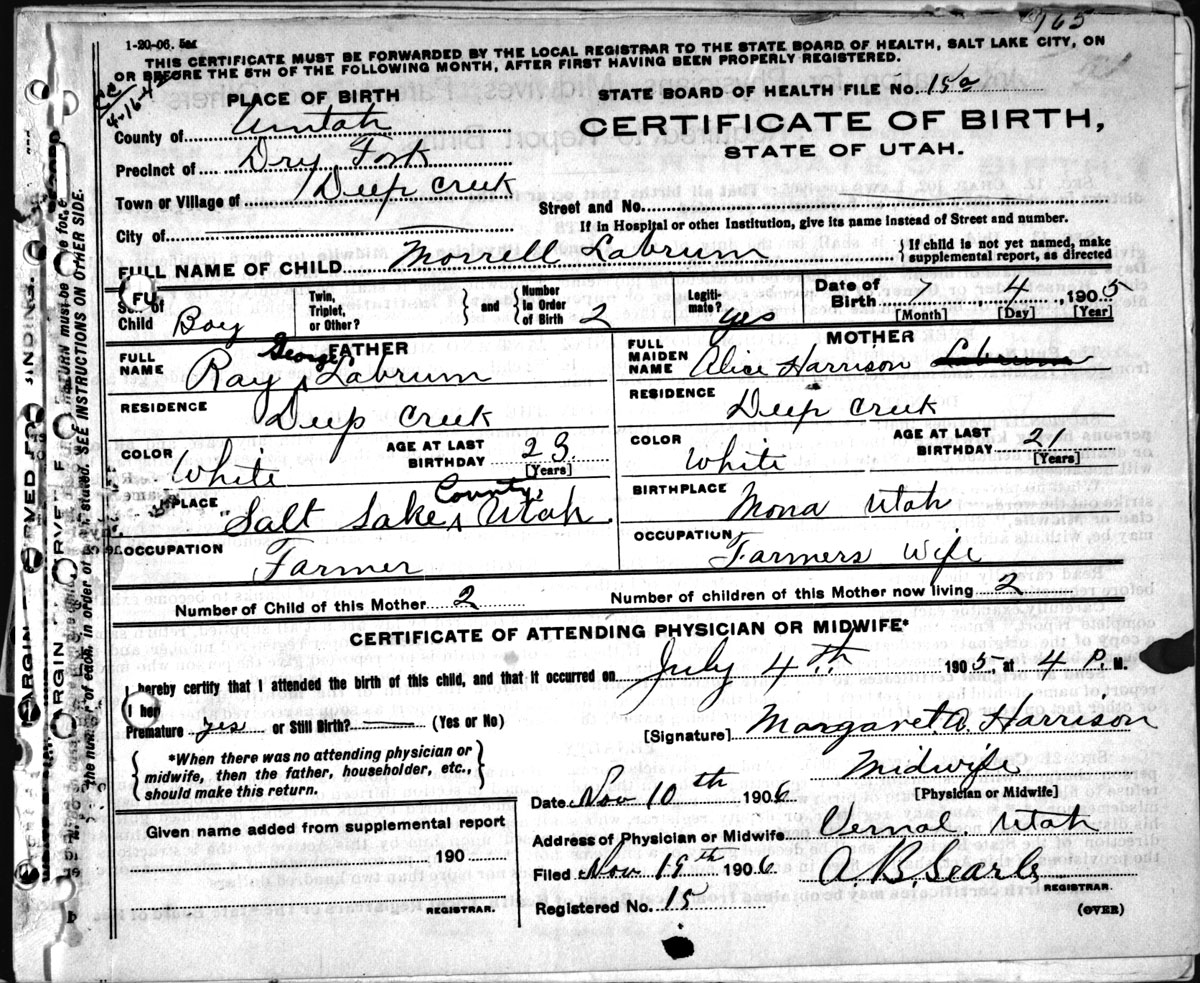 765
1-20-06. 5M
THIS CERTIFICATE MUST BE FORWARDED BY THE LOCAL REGISTRAR TO THE STATE BOARD OF HEALTH, SALT LAKE CITY, ON
OR BEFORE THE 5TH OF THE FOLLOWING MONTH, AFTER FIRST HAVING BEEN PROPERLY REGISTERED.
4-16-42
PLACE OF BIRTH
STATE BOARD OF HEALTH FILE No. 152
County of Uintah
CERTIFICATE OF BIRTH,
STATE OF UTAH.
Precinct of Dry Fork
Town or Village of Deep Creek
Street and No.
City of
If in Hospital or other Institution, give its name instead of Street and number.
FULL NAME OF CHILD Morrell Labrum
{ If child is not yet named, make
supplemental report, as directed
Sex of Child Boy
Twin, Triplet, or Other? } and { Number In Order of Birth 2
Legitimate? yes
Date of Birth 7 4 1905
[Month] [Day] [Year]
FATHER
FULL NAME Ray George Labrum
RESIDENCE Deep Creek
COLOR White
AGE AT LAST BIRTHDAY 23 [Years]
PLACE Salt Lake County, Utah
OCCUPATION Farmer
MOTHER
FULL MAIDEN NAME Alice Harrison Labrum
RESIDENCE Deep Creek
COLOR White
AGE AT LAST BIRTHDAY 21 [Years]
BIRTHPLACE Mona Utah
OCCUPATION Farmers Wife
Number of Child of this Mother 2
Number of children of this Mother now living 2
CERTIFICATE OF ATTENDING PHYSICIAN OR MIDWIFE*
I hereby certify that I attended the birth of this child, and that it occurred on July 4th 1905 at 4 P. M.
I her
Premature yes or Still Birth? (Yes or No)
[Signature] Margaret A. Harrison
Midwife
[Physician or Midwife]
{ *When there was no attending physician or
midwife, then the father, householder, etc.,
should make this return. }
Date Nov 10th 1906
Address of Physician or Midwife Vernal. Utah
Given name added from supplemental report
190
REGISTRAR.
Filed Nov 19th 1906 A B Searle
REGISTRAR.
Registered No. 15
(OVER)
SEE INSTRUCTIONS ON OTHER SIDE.